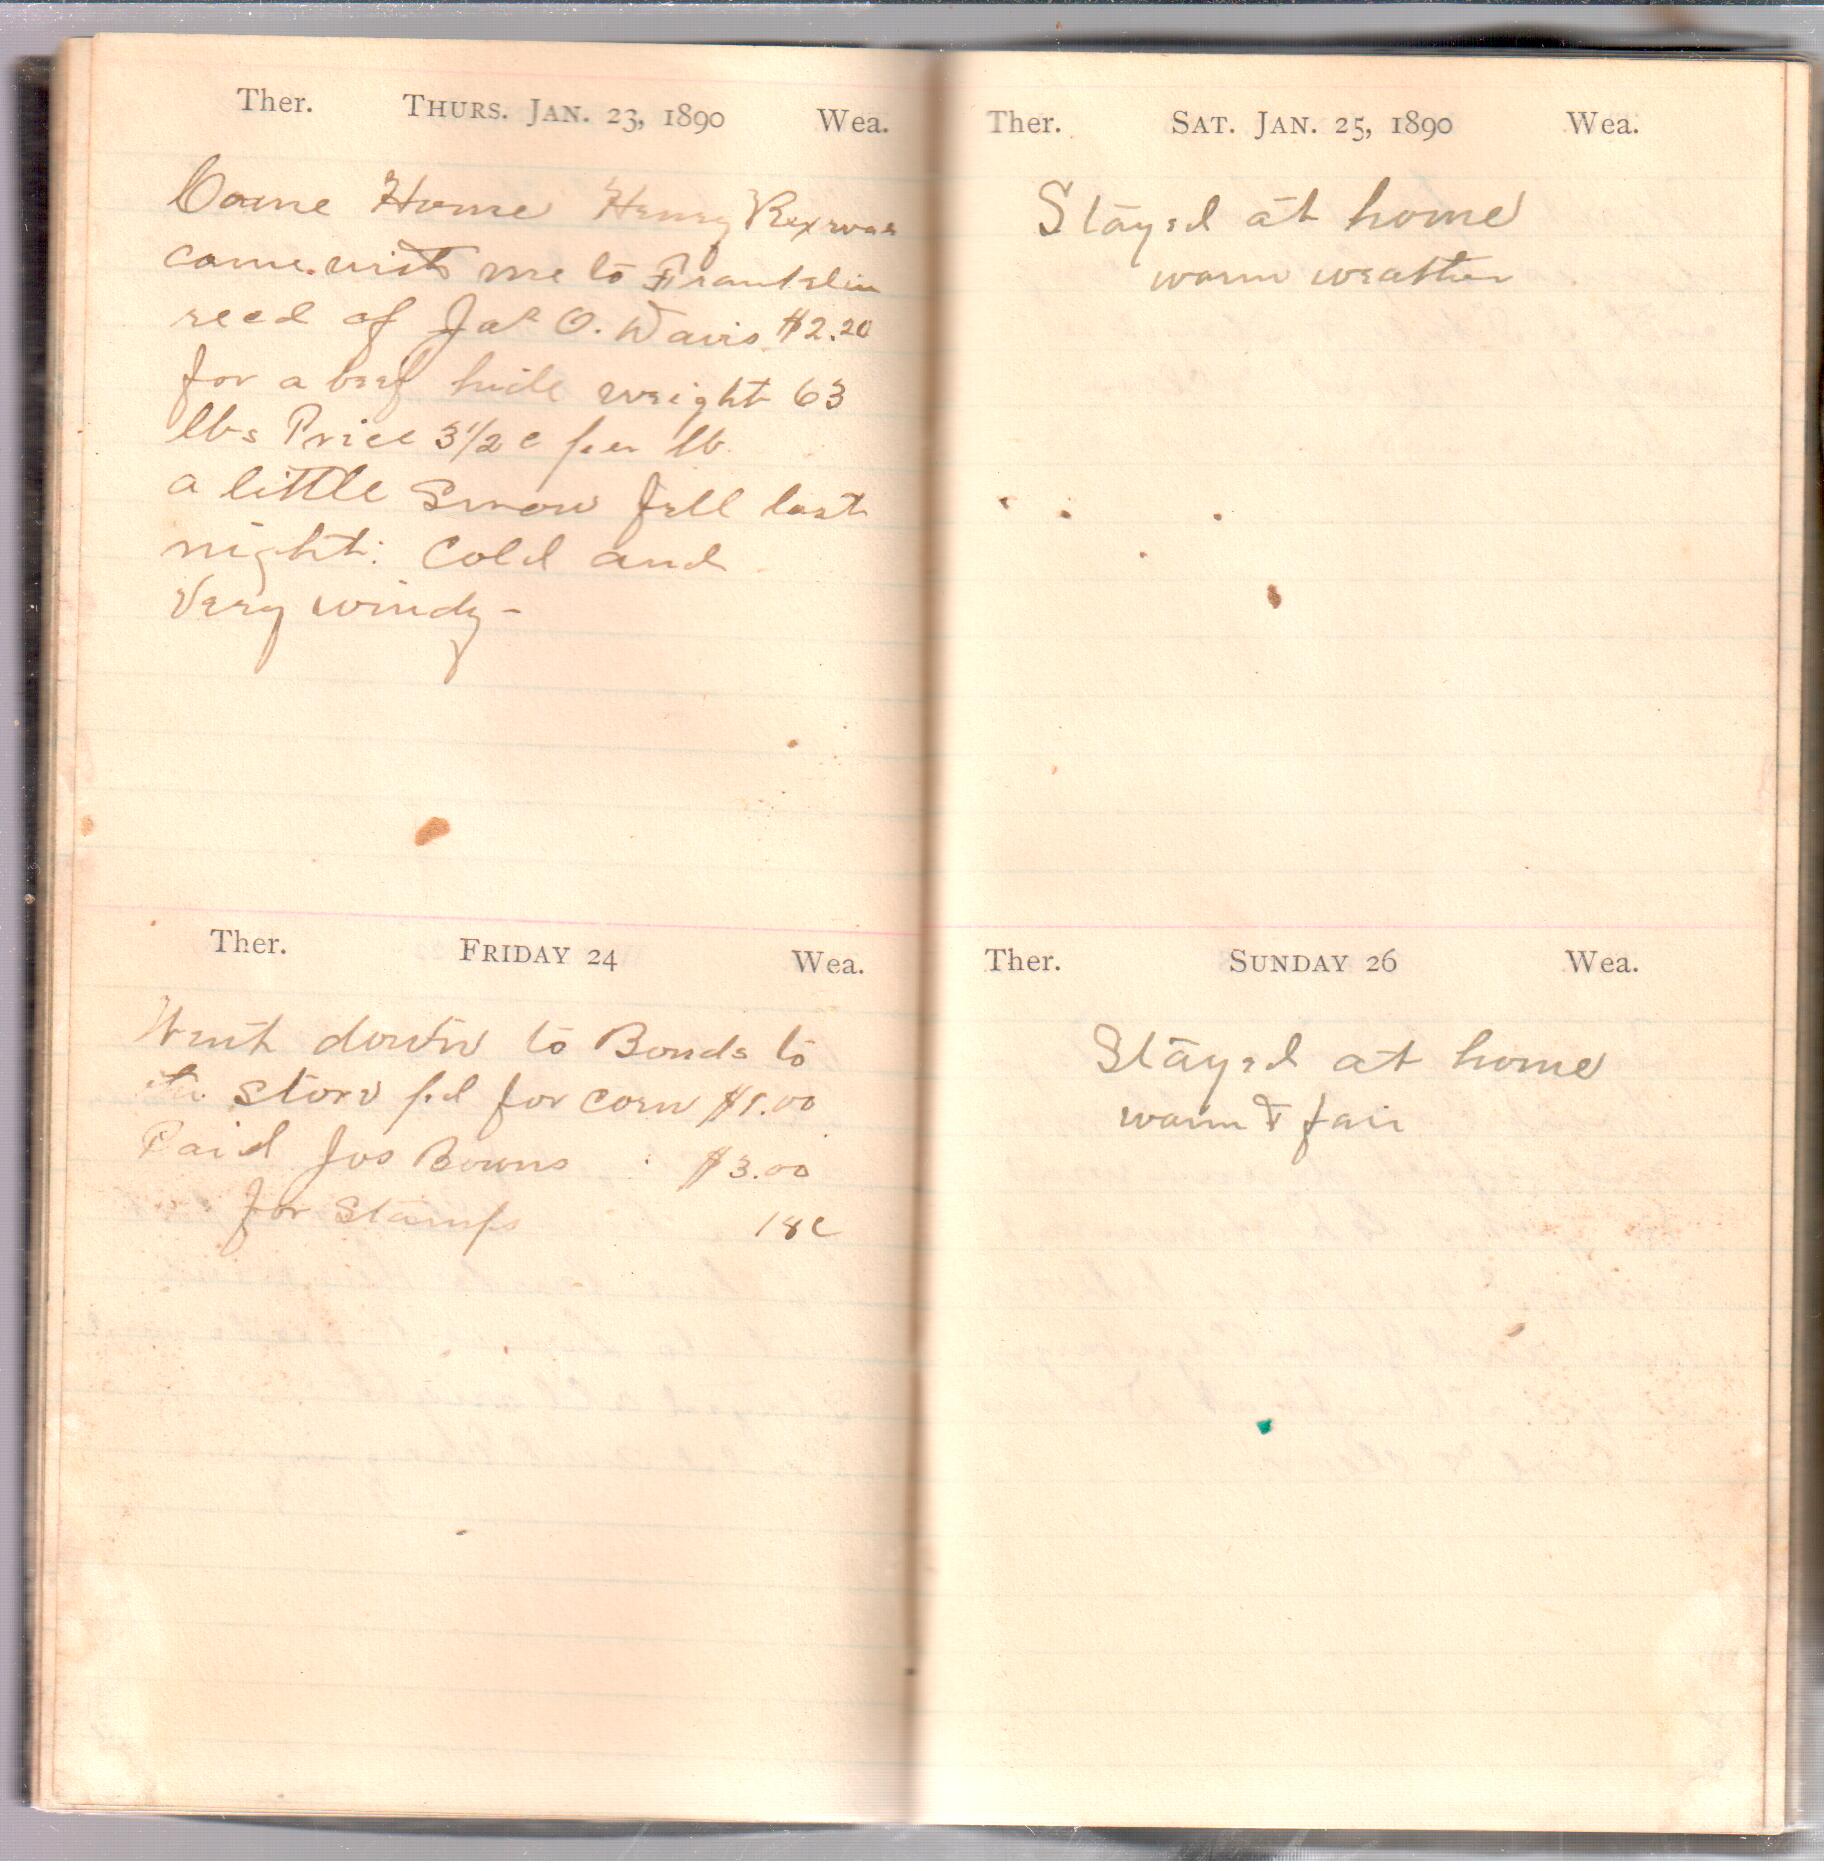 Ther. THURS. JAN. 23, 1890 Wea.
Came Home Henry Rexwas
came with me to Franklin
recd of Jas O. Davis $2.20
for a beef hide weight 63
lbs Price 3 1/2 c per lb
a little Snow fell last
night: Cold and
Very windy -
Ther. FRIDAY 24 Wea.
Went down to Bonds to
the store pd for corn $1.00
Paid Jos Bowns $3.00
for Stamps 18c
Ther. SAT. JAN. 25, 1890 Wea.
Stayed at home
warm weather
Ther. SUNDAY 26 Wea.
Stayed at home
warm & fair